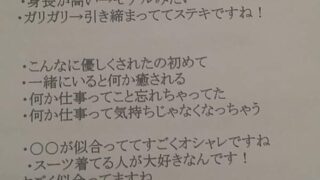 ・身長が高い→モデルみたい
・ガリガリ→引き締まっててステキですね！
・こんなに優しくされたの初めて
・一緒にいると何か癒される
・何か仕事ってこと忘れちゃってた
・何か仕事って気持ちじゃなくなっちゃう
・〇〇が似合っててすごくオシャレですね
・スーツ着てる人が大好きなんです！
すごく似合ってますね